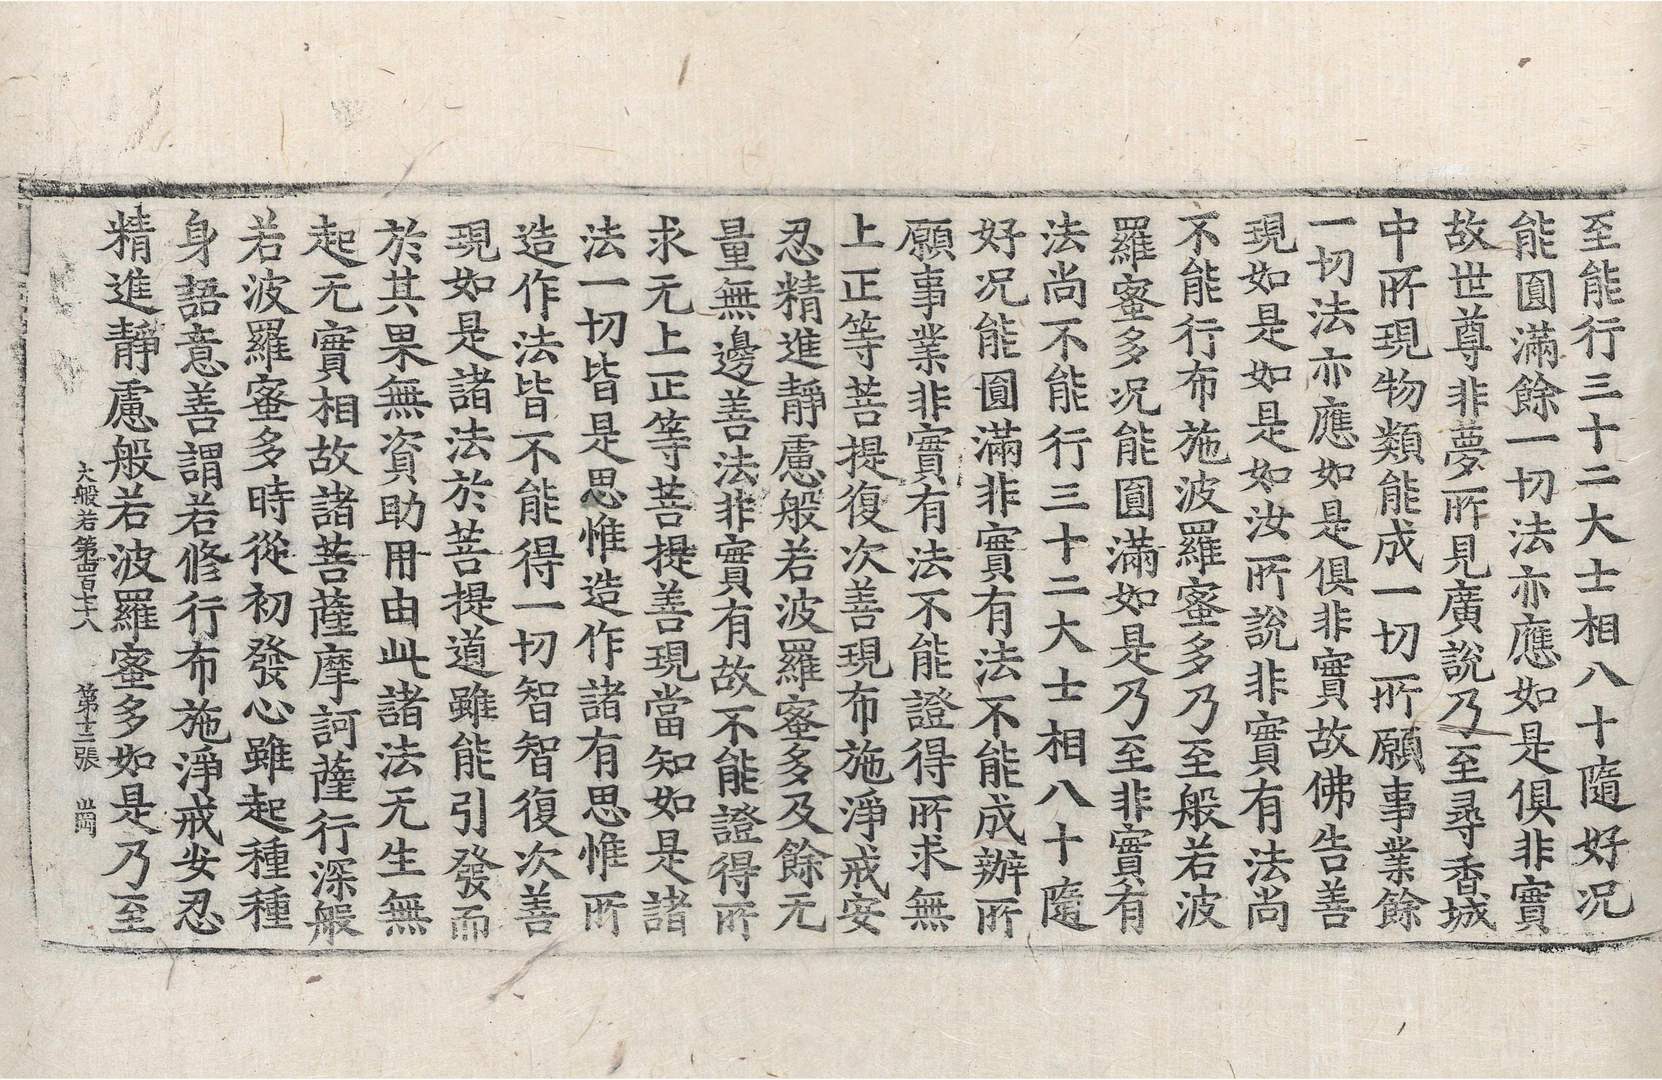 至能行三十二大士相八十隨好况
能圓滿餘一切法亦應如是俱非實
故世尊非夢所見廣說乃至尋香城
中所現物類能成一切所願事業餘
一切法亦應如是俱非實故佛告善
現如是如是如汝所說非實有法尚
不能行布施波羅蜜多乃至般若波
羅蜜多况能圓滿如是乃至非實有
法尚不能行三十二大士相八十隨
好况能圓滿非實有法不能成辦所
願事業非實有法不能證得所求無
上正等菩提復次善現布施淨戒安
忍精進靜慮般若波羅蜜多及餘无
量無邊善法非實有故不能證得所
求无上正等菩提善現當知如是諸
法一切皆是思惟造作諸有思惟所
造作法皆不能得一切智智復次善
現如是諸法於菩提道雖能引發而
於其果無資助用由此諸法无生無
起无實相故諸菩薩摩訶薩行深般
若波羅蜜多時從初發心雖起種種
身語意善謂若修行布施淨戒安忍
精進靜慮般若波羅蜜多如是乃至
大般若第四百七十八 第十三張 崗